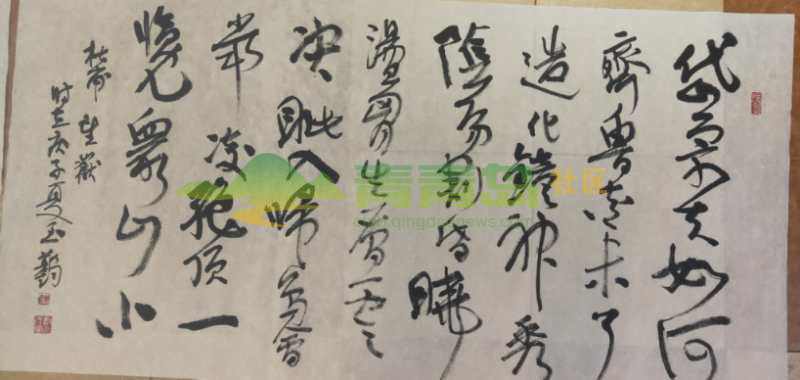 岱宗夫如何
齊魯青未了
造化鐘神秀
陰陽割昏曉
盪胷生曾雲
决眦入歸鳥會
當凌絶頂一
覽眾山小
杜甫望嶽
时在庚子夏玉
青青岛社区
qingdaonews.com